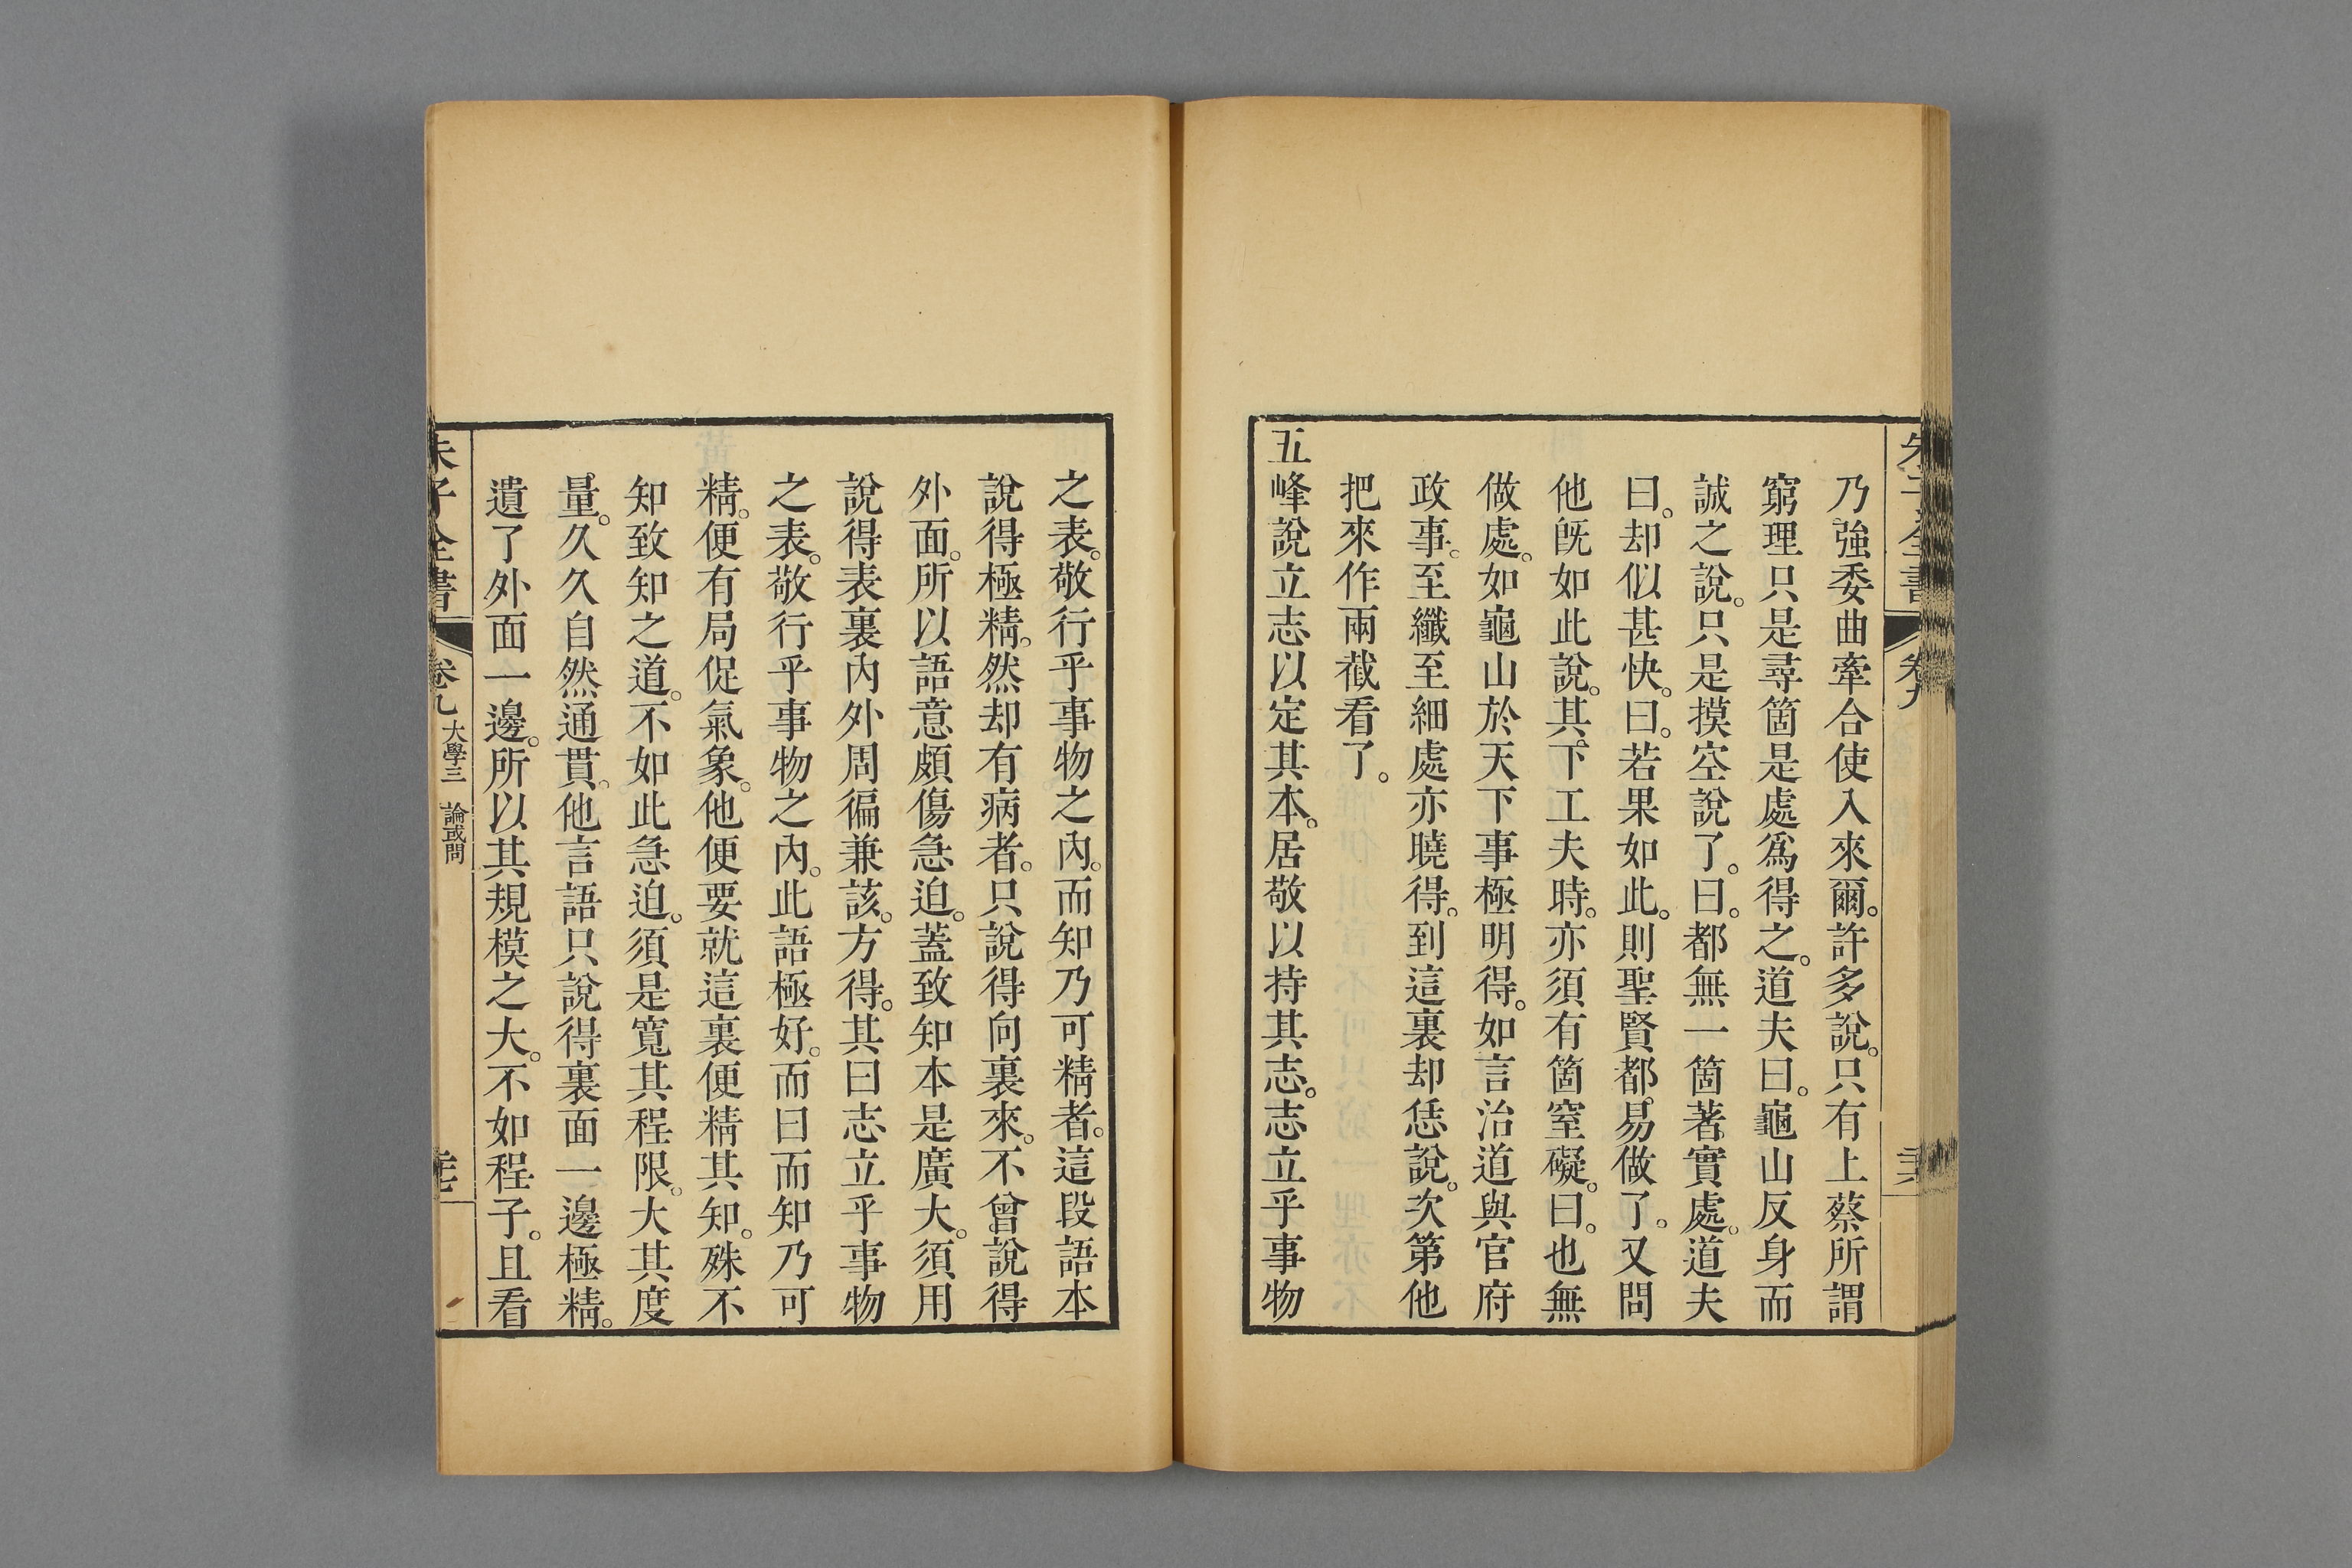 乃強委曲牽合使入來爾。許多說。只有上蔡所謂
窮理只是尋箇是處爲得之。道夫曰。龜山反身而
誠之說。只是摸空說了。曰。都無一箇著實處。道夫
曰。却似甚快。曰。若果如此。則聖賢都易做了。又問
他旣如此說。其下工夫時。亦須有箇窒礙。曰。也無
做處。如龜山於天下事極明得。如言治道與官府
政事。至纖至細處亦曉得。到這裏却恁說。次第他
把來作兩截看了。
五峰說立志以定其本。居敬以持其志。志立乎事物
之表。敬行乎事物之內。而知乃可精者。這段語本
說得極精。然却有病者。只說得向裏來。不曾說得
外面。所以語意頗傷急迫。蓋致知本是廣大。須用
說得表裏內外周徧兼該。方得。其曰志立乎事物
之表。敬行乎事物之內。此語極好。而曰而知乃可
精。便有局促氣象。他便要就這裏便精其知。殊不
知致知之道。不如此急迫。須是寬其程限。大其度
量。久久自然通貫。他言語只說得裏面一邊極精。
遺了外面一邊。所以其規模之大。不如程子。且看
朱子全書
卷九
大學三 論或問